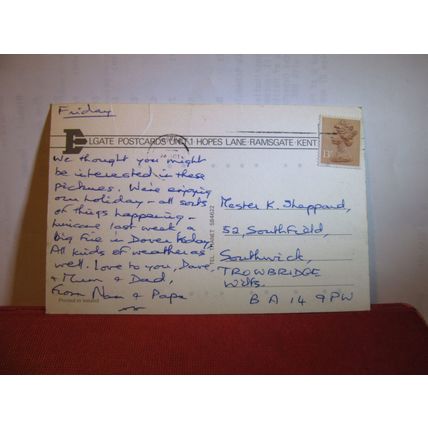 Friday
ELGATE POSTCARDS UNIT 1 HOPES LANE RAMSGATE KENT
We thought you might
be interested in these
pictures. We're enjoying
our holiday - all sorts
of things happening -
hurricane last week a
Big Fire in Dover today
All kinds of weather as
well. Love to you, Dave,
+ Mum & Dad,
From Nan & Papa
Printed in
TEL. THANET 584622
13
Master K. Sheppard,
52, Southfield,
Southwick,
TROWBRIDGE
Wilts.
BA14 9PW